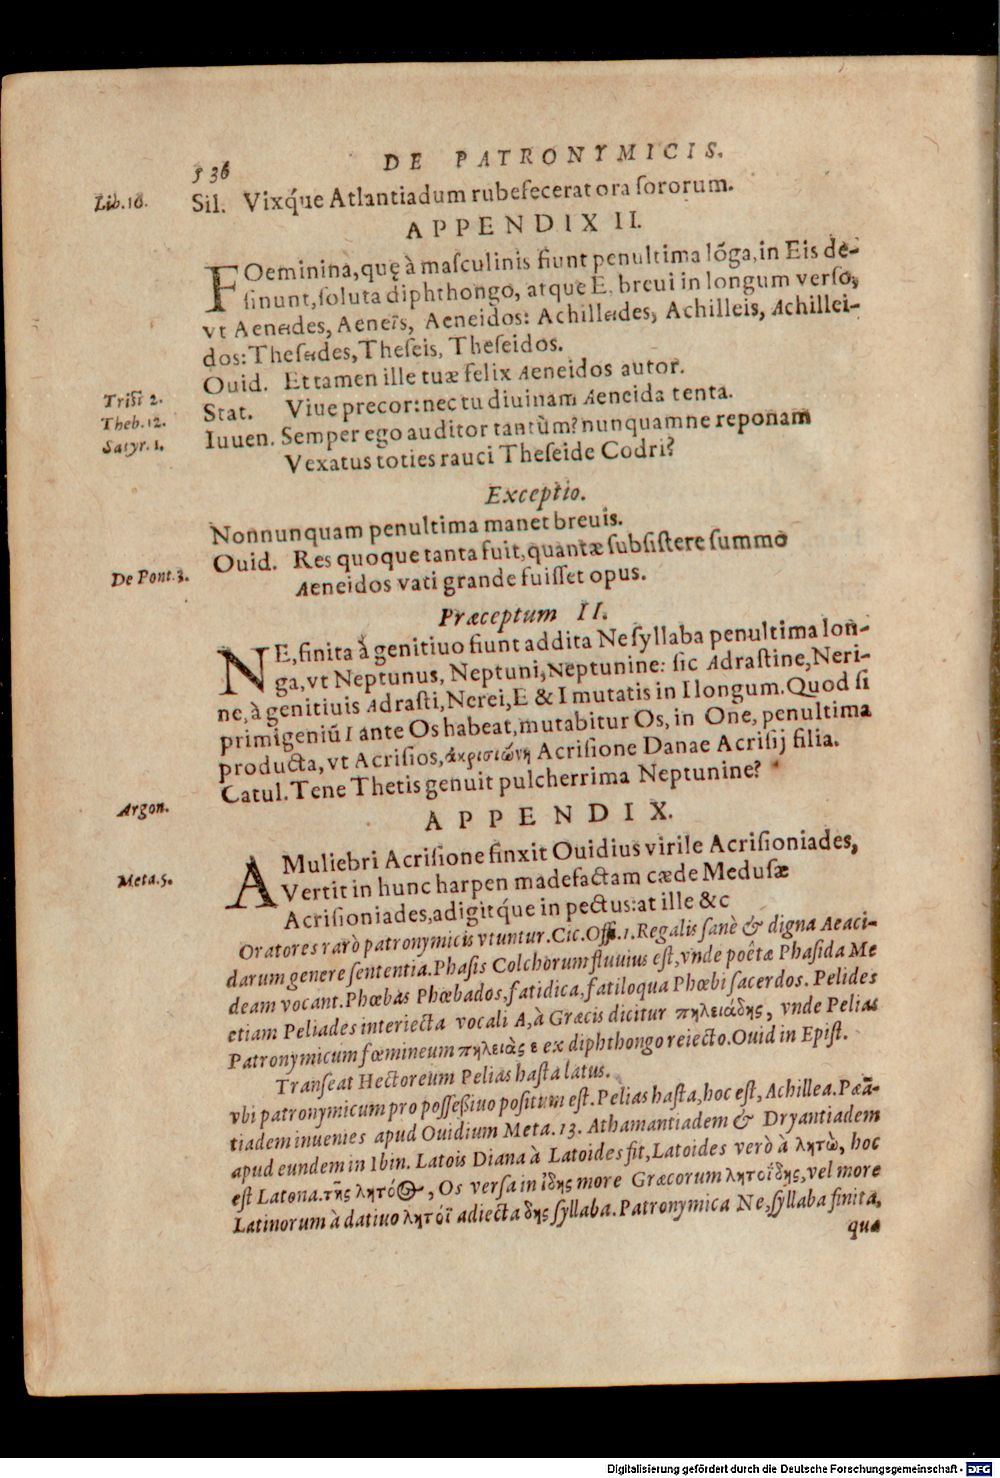 536 DE PATRONYMICIS.
Lib.16. Sil. Vixq́ue Atlantiadum rubefecerat ora sororum.
APPENDIX II.
FOeminina, quę à masculinis fiunt penultima lõga, in Eis de-
sinunt, soluta diphthongo, atque E, breui in longum verso,
vt Aeneides, Aeneis, Aeneidos: Achilleides, Achilleis, Achillei-
dos: Theseides, Theseis, Theseidos.
Ouid. Et tamen ille tuæ felix Aeneidos autor.
Tristi 2.
Stat. Viue precor: nec tu diuinam Aeneida tenta.
Theb.12.
Iuuen. Semper ego auditor tantùm? nunquamne reponam
Satyr.1.
Vexatus toties rauci Theseide Codri?
Exceptio.
Nonnunquam penultima manet breuis.
Ouid. Res quoque tanta fuit, quantæ subsistere summo
De Pont.3.
Aeneidos vati grande fuisset opus.
Præceptum II.
NE, finita à genitiuo fiunt addita Ne syllaba penultima lon-
ga, vt Neptunus, Neptuni, Neptunine: sic Adrastine, Neri-
ne, à genitiuis Adrasti, Nerei, E & I mutatis in I longum. Quod si
primigeniũ I ante Os habeat, mutabitur Os, in One, penultima
producta, vt Acrisios, ἀκρισιώνη Acrisione Danae Acrisij filia.
Catul. Tene Thetis genuit pulcherrima Neptunine?
Argon.
APPENDIX.
A Muliebri Acrisione finxit Ouidius virile Acrisioniades,
Meta.5.
Vertit in hunc harpen madefactam cæde Medusæ
Acrisioniades, adigitq́ue in pectus: at ille &c
Oratores rarò patronymicis vtuntur. Cic. Offi. 1. Regalis sanè & digna Aeaci-
darum genere sententia. Phasis Colchorum fluuius est, vnde poêtæ Phasida Me
deam vocant. Phœbas Phœbados, fatidica, fatiloqua Phœbi sacerdos. Pelides
etiam Peliades interiecta vocali A, à Græcis dicitur πηλειάδης, vnde Pelias
Patronymicum fœmineum πηλειὰς ε ex diphthongo reiecto. Ouid in Epist.
Transeat Hectoreum Pelias hasta latus.
vbi patronymicum pro possessiuo positum est. Pelias hasta, hoc est, Achillea. Pæã-
tiadem inuenies apud Ouidium Meta. 13. Athamantiadem & Dryantiadem
apud eundem in Ibin. Latois Diana à Latoides fit, Latoides verò à λητὼ, hoc
est Latona. τῆς λητό⊙, Os versa in ἴδης more Græcorum λητοΐδης, vel more
Latinorum à datiuo λητόϊ adiecta δης syllaba. Patronymica Ne, syllaba finita,
qua
Digitalisierung gefördert durch die Deutsche Forschungsgemeinschaft - DFG